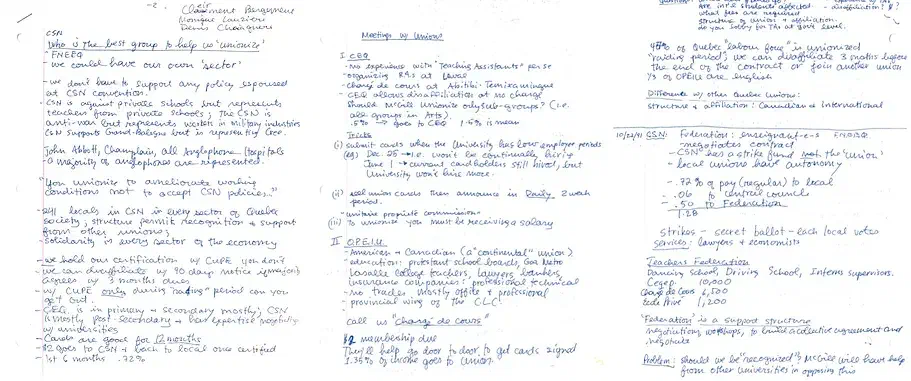 -2-
Clairmont Bergement
Monique Lauzière
Denis Chaigneau
CSN
Who is the best group to help us 'unionize'
- FNEEQ
- we could have our own 'sector'
- we don't have to support any policy espoused
at CSN convention.
- CSN is against private schools but represents
teachers from private schools; The CSN is
anti-war but represents workers in Military industries.
CSN supports Grand-Baleine but is representing Cree.
John Abbott, Champlain, all Anglophone Hospitals
- a majority of anglophones are represented.
"You unionize to ameliorate working
conditions not to accept CSN policies."
- locals in CSN in every sector of Quebec
society; structure permit recognition & support
from other unions;
- Solidarity is every sector of the economy
- we hold our certification w/ CUPE you don't
- we can disaffiliate w/ 90 days notice if majority
agrees w/ 3 months dues
- w/ CUPE only during "raiding" period can you
get out.
- CEQ is in primary & secondary mostly; CSN
is mostly post-secondary & has expertise negotiating
w/ universities
- Cards are good for 12 months
- $2 goes to CSN & back to local once certified
- 1st 6 months .72%
Meetings w/ Unions
I CEQ
- No experience with "Teaching Assistants" per se
- organizing RAs at Laval
- Chargé de cours at Abitibi-Temiscamingue
- CEQ allows disaffiliation at no charge
Should McGill Unionize only sub-groups? (i.e.
all groups in Arts).
.5% → goes to CEQ 1.5% is mean
Tricks
(i) submit cards when the University has low employee periods
(eg) Dec. 25 → i.e. won't be continually hiring
June 1 → current cardholders still hired, but
University won't hire more.
(ii) sell union cards then announce in Daily. 2 week
period.
(iii) To unionize you must be receiving a salary
II O.P.E.I.U.
- American & Canadian (a "continental" union)
- education: protestant school boards, Gaz Metro
Lasalle College teachers, lawyers, bankers,
Insurance companies: professional technical
- no trades mostly office & professional
- provincial wing of the CLC
call us "chargé de cours"
$2 membership due
They'll help go door to door, to get cards signed
1.35% of income goes to union.
Are int'l students affected - disaffiliation?
what fees are required
structure of union & affiliation.
do you lobby for TAs at gov't level.
40% of Quebec "labour force" is unionized
"raiding period"; we can disaffiliate 3 months before
the end of the contract or join another union
1/3 of OPEIU are english
Difference w/ other Quebec Unions:
structure & affiliation: Canadian & International
10/22/91 CSN: Federation: enseignant-e-s FNEEQ
negotiates contract
- CSN has a strike fund not the 'union'
- local unions have autonomy
- .72% of pay (regular) to local
- .06 to central council
- .50 to Federation
1.28
strikes - secret ballot - each local votes
services: lawyers & economists
Teachers Federation
Dancing School, Driving School, Interns supervisors.
Cegep 10,000
Chargé de Cours 6,500
Ecole Privé 1,200
'Federation' is a support structure
negotiations, workshops, to build a collective agreement and
negotiate
Problem: should we be "recognized"? McGill will have help
from other Universities in opposing this